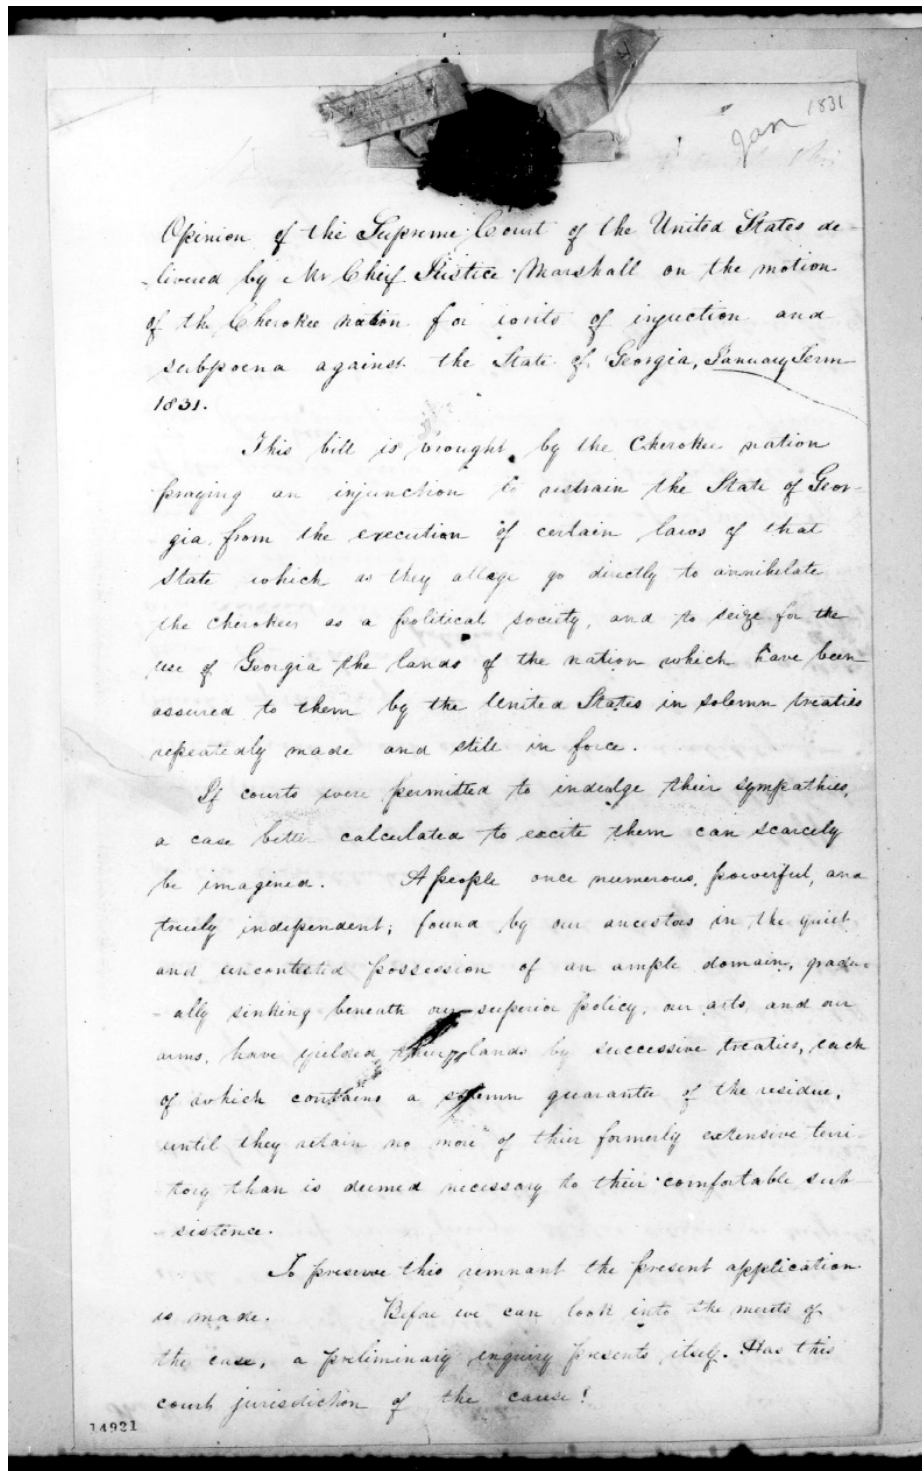 Jan 1831
Opinion of the Supreme Court of the United States de-
-livered by Mr Cheif Justice Marshall on the motion
of the Cherokee nation for writs of injuction and
subpoena against the State of Georgia, January Term
1831.
This bill is brought by the Cherokee nation
praying an injunction to restrain the State of Geor-
gia from the execution of certain laws of that
State which as they allege go directly to annihelate
the Cherokees as a political society, and to seize for the
use of Georgia the lands of the nation which have been
assured to them by the United States in solemn treaties
repeatedly made and still in force.
If courts were permitted to indulge their sympathies,
a case better calculated to excite them can scarcely
be imagined. A people once numerous, powerful, and
truely independent; found by our ancestors in the quiet
and uncontested possession of an ample domain, gradu-
-ally sinking beneath our superior policy, our arts, and our
arms, have yielded their lands by successive treaties, each
of which contains a solemn guarantee of the residue,
until they retain no more of thier formerly extensive terri-
tory than is deemed necessary to their comfortable sub-
-sistence.
To preserve this remnant the present application
is made. Before we can look into the merits of
the case, a preliminary inquiry presents itself. Has this
court jurisdiction of the cause!
14921